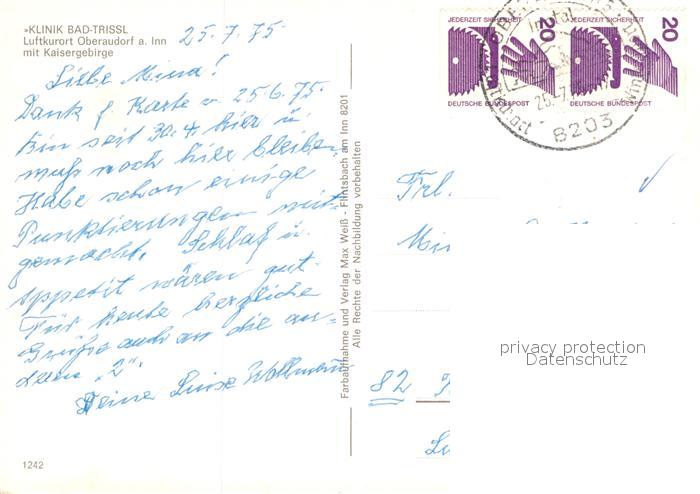 »KLINIK BAD-TRISSL
Luftkurort Oberaudorf a. Inn
mit Kaisergebirge
25.7.75
Liebe Mina!
Dank f. Karte v. 25.6.75.
Bin seit 30.4. hier u.
muß noch hier bleiben,
Habe schon einige
Punktierungen mit-
gemacht. Schlaf u.
Appetit wären gut.
Für heute herzliche
Grüße auch an die an-
dern "2".
Deine Luise
1242
Farbaufnahme und Verlag Max Weiß - Flintsbach am Inn 8201
Alle Rechte der Nachbildung vorbehalten
JEDERZEIT SICHERHEIT
20
DEUTSCHE BUNDESPOST
JEDERZEIT SICHERHEIT
20
DEUTSCHE BUNDESPOST
8203
Frl.
82
privacy protection
Datenschutz